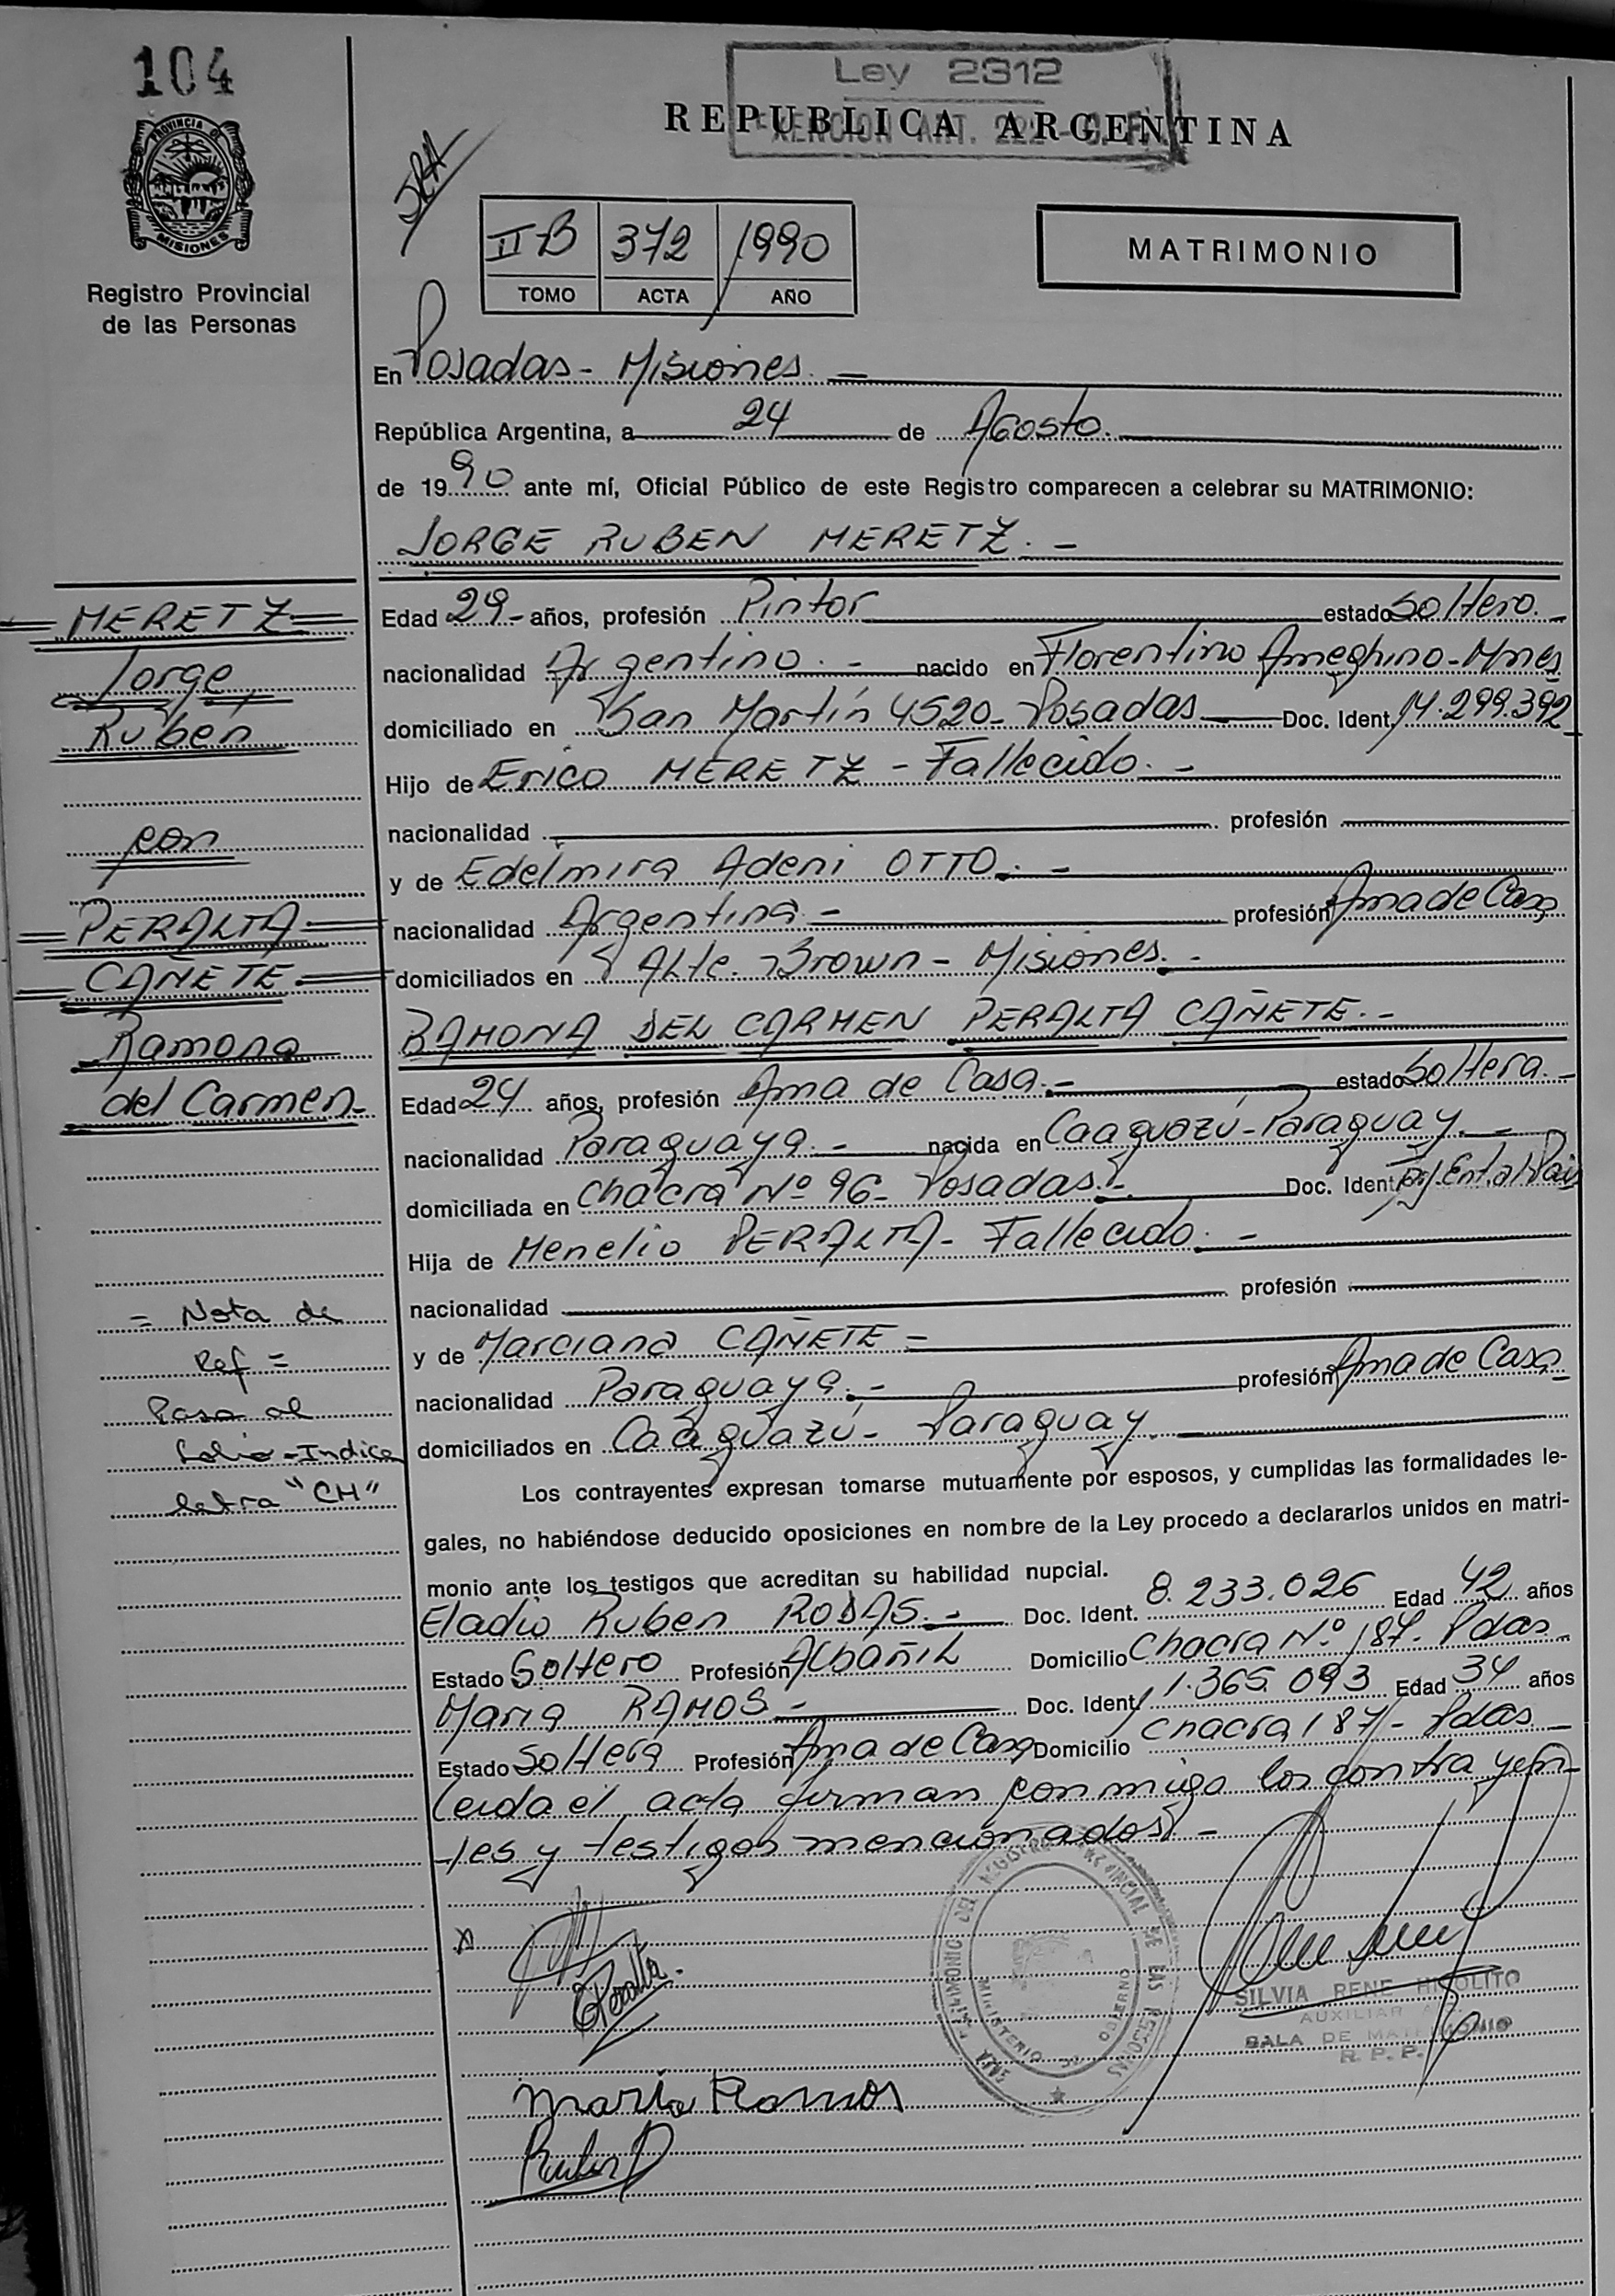 104
Ley 2312
EXENCION ART. 222
REPUBLICA ARGENTINA
PROVINCIA DE
MISIONES
Registro Provincial
de las Personas
II B 372 1990
TOMO ACTA AÑO
MATRIMONIO
En Posadas - Misiones. -
República Argentina, a 24 de Agosto.
de 1990 ante mí, Oficial Público de este Registro comparecen a celebrar su MATRIMONIO:
JORGE RUBEN MERETZ. -
MERETZ
Jorge
Rubén
con
PERALTA
CAÑETE
Ramona
del Carmen-
Edad 29- años, profesión Pintor estado Soltero. -
nacionalidad Argentino. - nacido en Florentino Ameghino - Mnes
domiciliado en San Martín 4520- Posadas Doc. Ident. 14.299.392
Hijo de Erico MERETZ - Fallecido. -
nacionalidad profesión
y de Edelmira Adeni OTTO. -
nacionalidad Argentina - profesión Ama de Casa
domiciliados en Alte. Brown - Misiones. -
RAMONA DEL CARMEN PERALTA CAÑETE. -
Edad 24 años, profesión Ama de Casa. - estado Soltera. -
nacionalidad Paraguaya. - nacida en Caaguazú - Paraguay. -
domiciliada en Chacra Nº 96- Posadas. - Doc. Ident. Ent. al País
Hija de Menelio PERALTA - Fallecido. -
nacionalidad profesión
y de Marciana CAÑETE -
nacionalidad Paraguaya. - profesión Ama de Casa
domiciliados en Caaguazú - Paraguay.
= Nota de
Ref =
Pasa al
folio - Indice
letra "CH"
Los contrayentes expresan tomarse mutuamente por esposos, y cumplidas las formalidades le-
gales, no habiéndose deducido oposiciones en nombre de la Ley procedo a declararlos unidos en matri-
monio ante los testigos que acreditan su habilidad nupcial.
Eladio Ruben RODAS. - Doc. Ident. 8.233.026 Edad 42 años
Estado Soltero Profesión Albañil Domicilio Chacra Nº 187- Pdas
Maria RAMOS - Doc. Ident. 11.365.093 Edad 34 años
Estado Soltera Profesión Ama de Casa Domicilio Chacra 187- Pdas -
Leida el acta firman conmigo los contrayen-
tes y testigos mencionados. -
Peralta
SILVIA RENE HIPOLITO
AUXILIAR
SALA DE MATRIMONIO
R. P. P.
SALA MATRIMONIO DEL REGISTRO PROVINCIAL DE LAS PERSONAS
MINISTERIO DE GOBIERNO
María Ramos